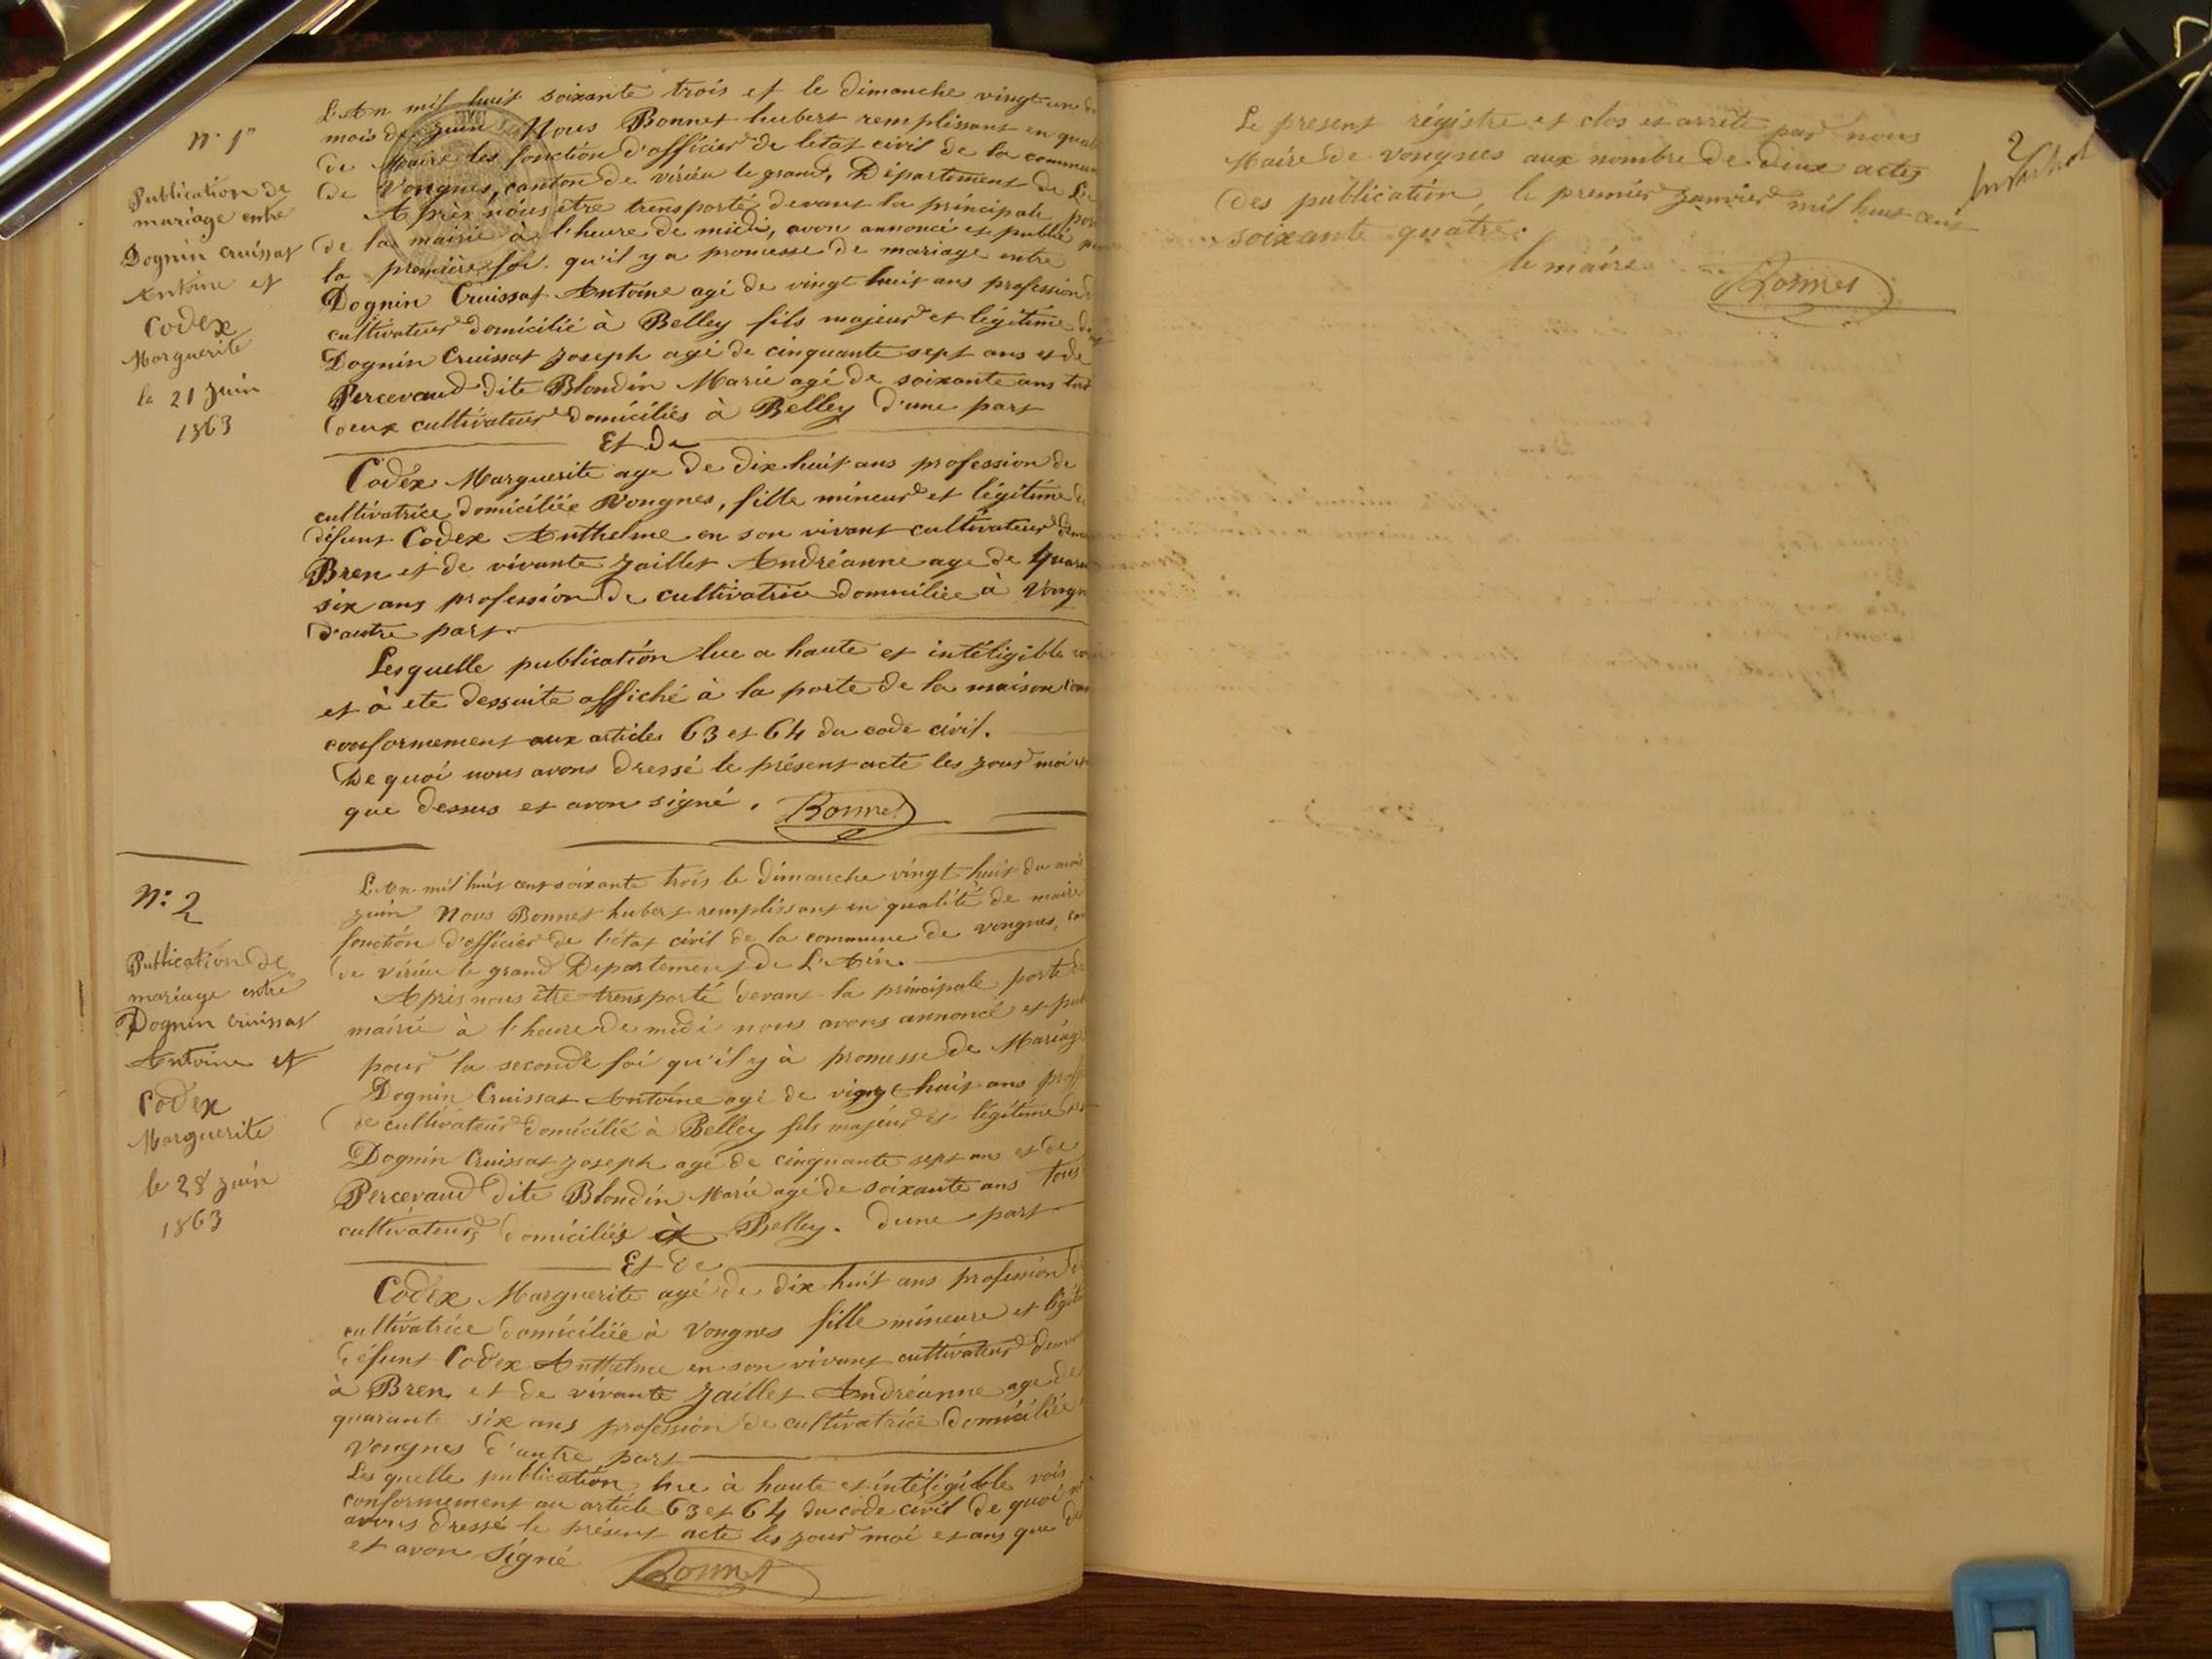 N° 1er
Publication de
mariage entre
Dognin Cruissat
Antoine et
Codex
Marguerite
le 21 juin
1863
L'An mil huit soixante trois et le dimanche vingt un
mois de juin Nous Bonnet hubert remplissant en
de Maire les fonction d'officier de letat civil de la
de Vongnes, canton de virieu le grand, Département de
Après nous être trensporté devant la principale
de la mairie à l'heure de midi, avon annoncé et publié
la première foi qu'il y a promesse de mariage entre
Dognin Cruissat Antoine agé de vingt huit ans profession
cultivateur domicilié à Belley fils majeur et légitime
Dognin Cruissat Joseph agé de cinquante sept ans et de
Percevaud dite Blondin Marie agé de soixante ans
deux cultivateur domiciliés à Belley d'une part
Et de
Codex Marguerite age de dix huit ans profession de
cultivatrice domiciliée Vongnes, fille mineur et légitime
défunt Codex Anthelme en son vivant cultivateur
Bren et de vivante Jaillet Andréanne age de
six ans profession de cultivatrice domiciliée à
d'autre part.
Lesquelle publication lue a haute et intéligible
et à ete dessuite affiché à la porte de la maison
conformement aux articles 63 et 64 du code civil.
De quoi nous avons dressé le présent acte les jour moi et
que dessus et avon signé. Bonnet
N: 2
Publication de
mariage entre
Dognin Cruissat
Antoine et
Codex
Marguerite
le 28 juin
1863
L'An mil huit cent soixante trois le dimanche vingt huit du mois
juin Nous Bonnet hubert remplissant en qualité de maire
fonction d'officier de l'état civil de la commune de vongnes,
de virieu le grand Departement de L'Ain.
Après nous être trensporté devant la principale porte
mairie à l'heure de midi nous avons annoncé et
pour la seconde foi qu'il y à promesse de Mariage
Dognin Cruissat Antoine agé de vignt huit ans
de cultivateur domicilié à Belley fils majeur et légitime
Dognin Cruissat Joseph agé de cinquante sept ans et de
Percevaud dite Blondin Marie agé de soixante ans tous
cultivateurs domiciliés à Belley. dune part
Et de
Codex Marguerite agé de dix huit ans profession
cultivatrice domiciliée à Vongnes fille mineure et
défunt Codex Anthelme en son vivant cultivateur
à Bren et de vivante Jaillet Andréanne age de
quarante six ans profession de cultivatrice domiciliée
Vongnes d'autre part
Les quelle publication lue à haute et intéligible vois
conformement au article 63 et 64 du code civil de quoi
avons dressé le présent acte les jour moi et ans que
et avon signé Bonnet
Le present régistre et clos et arrêté par nous
Maire de vongnes aux nombre de deux actes
des publication, le premier Janvier mil huit cent
soixante quatre.
le maire Bonnet
2